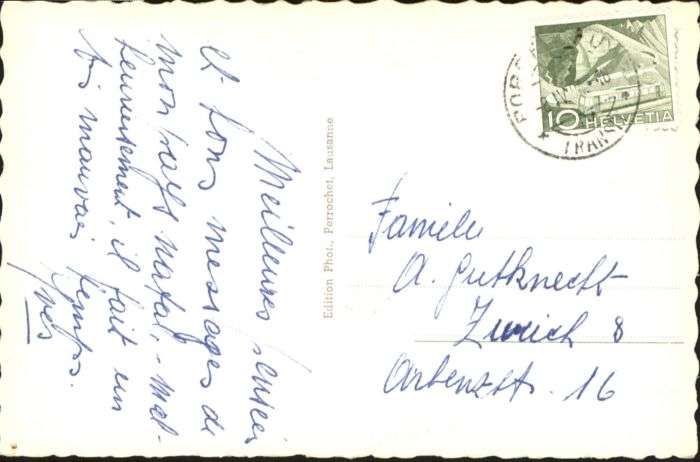 Meilleures pensées
et bons messages de
mon pays natal, – mal-
heureusement, il fait un
très mauvais temps.
Yves
Edition Phot., Perrochet, Lausanne
10 HELVETIA
TRANS
Familie
A. Gutknecht
Zurich 8
Arbenzstr. 16